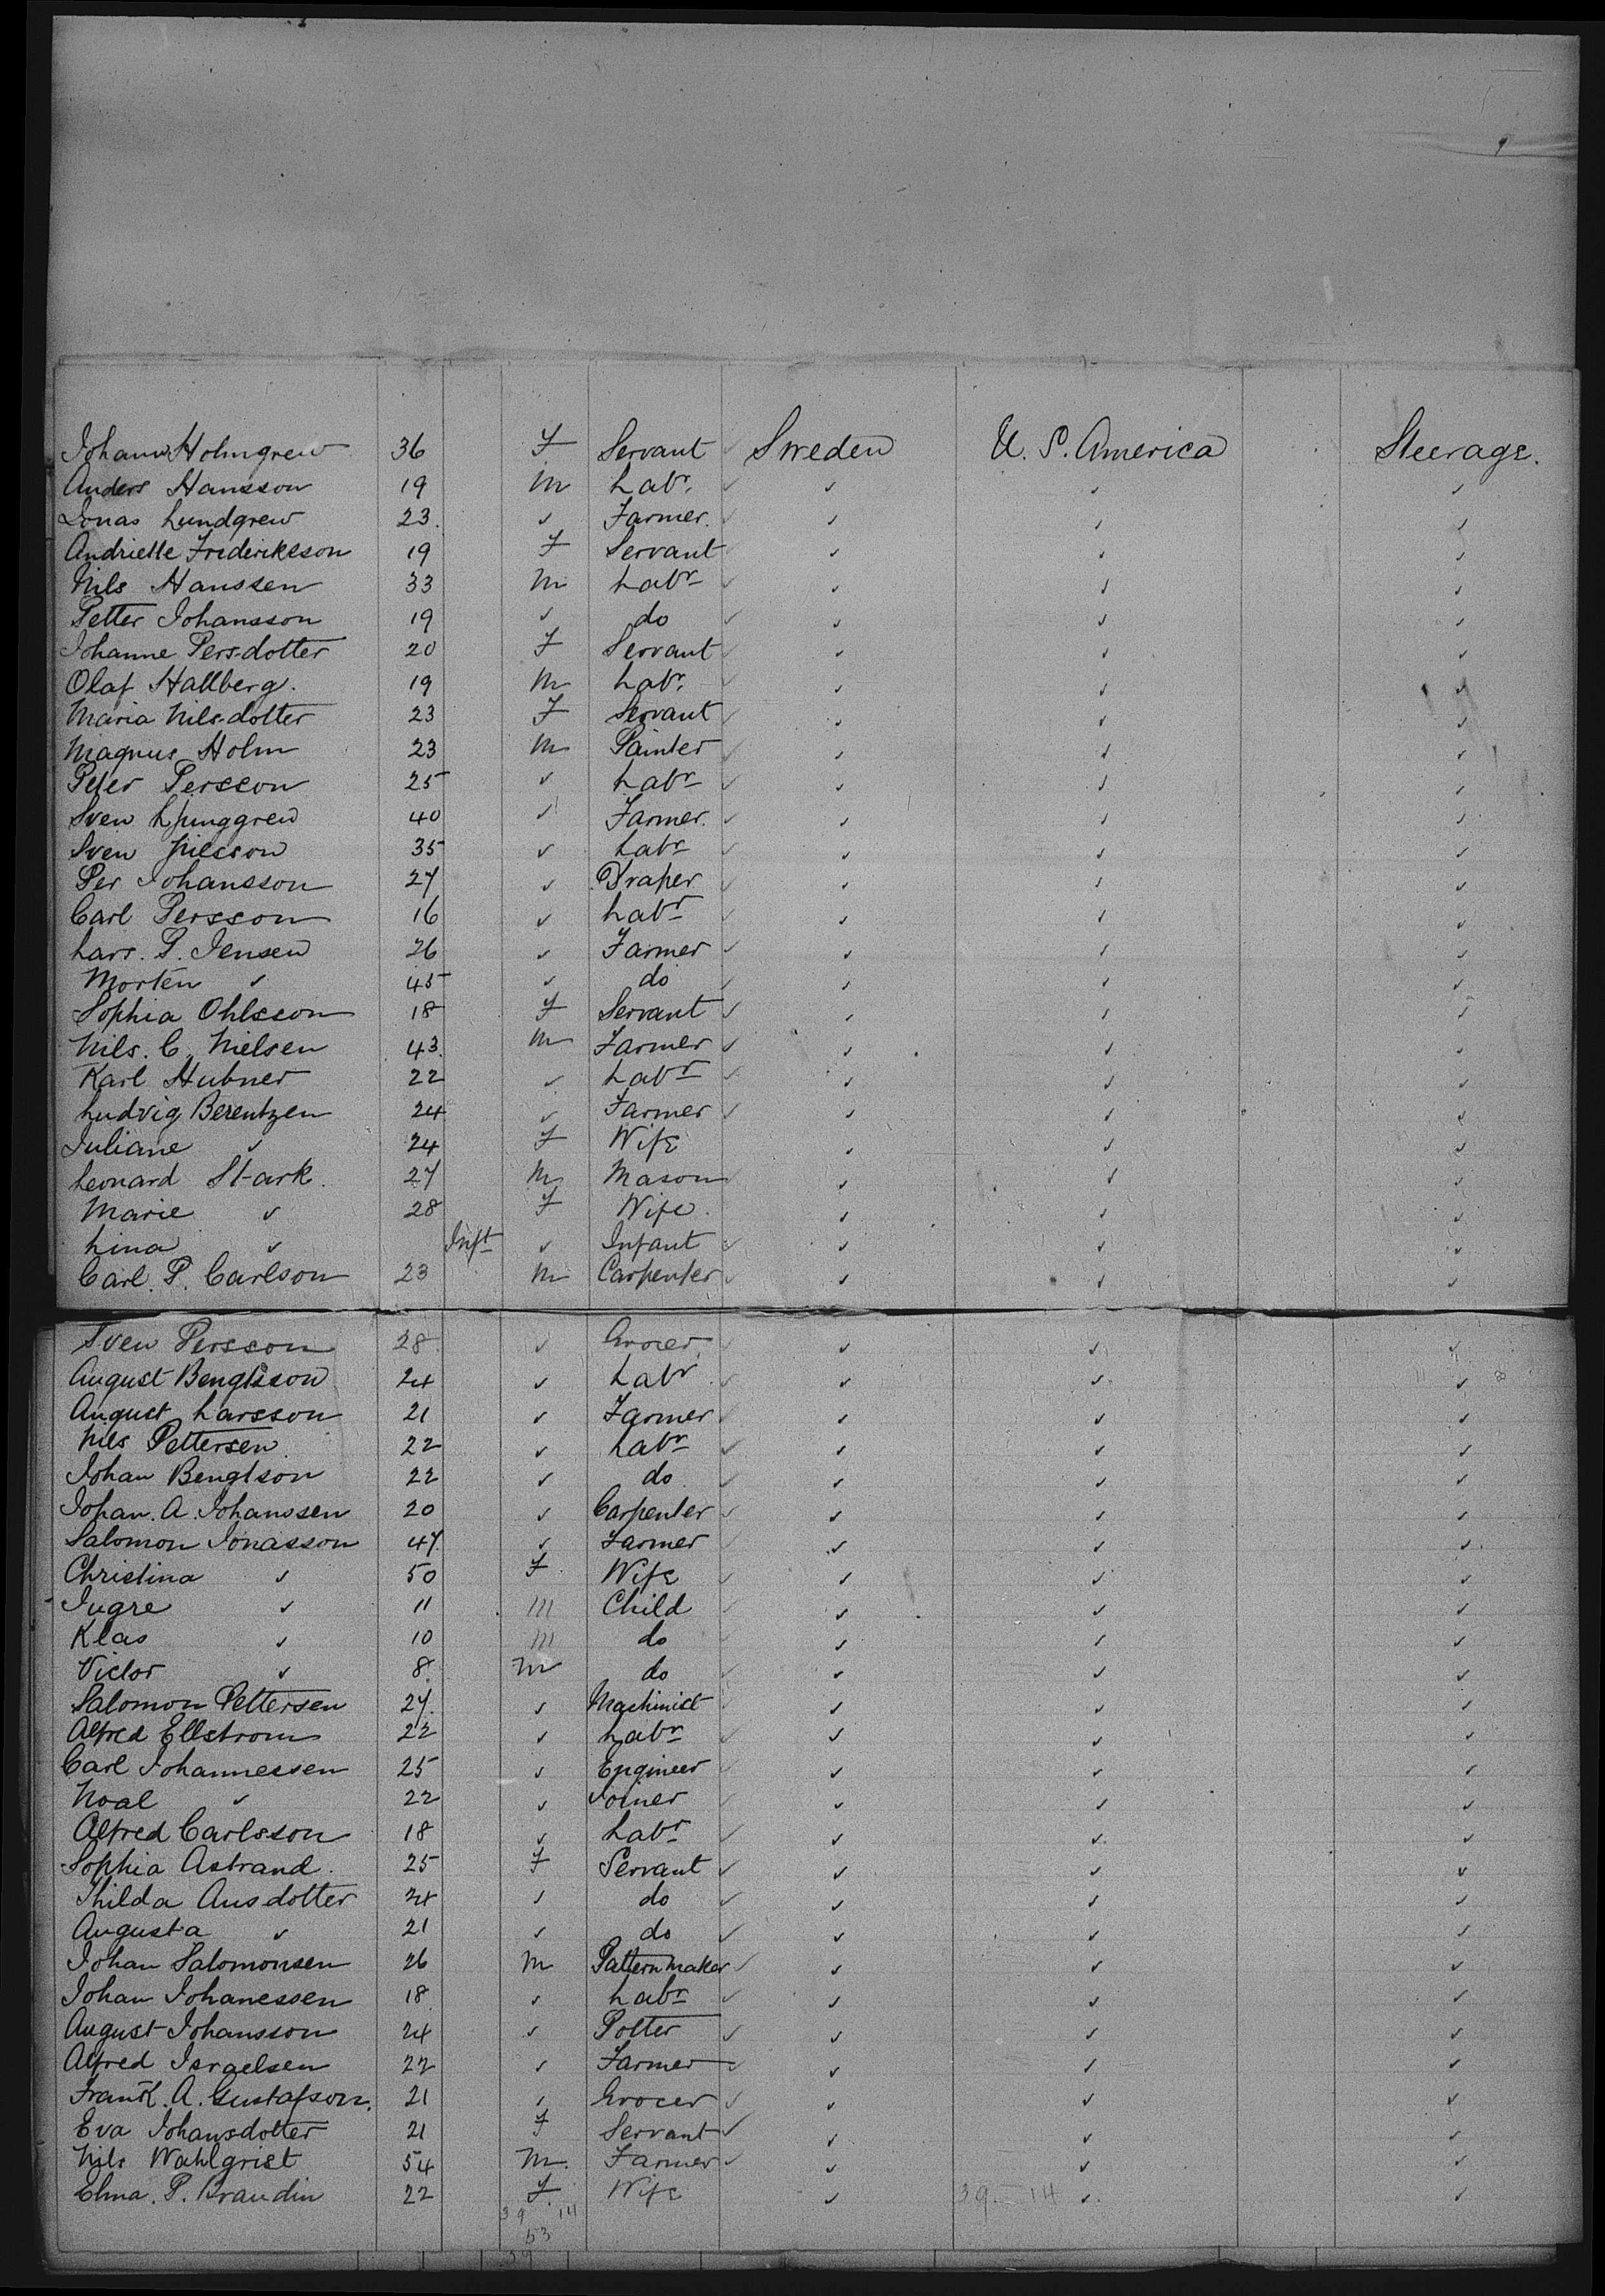 Johann Holmgren 36 F Servant ✓ Sweden U. S. America Steerage.
Anders Hansson 19 M Labr. ✓ ✓ ✓ ✓
Jonas Lundgren 23. ✓ Farmer. ✓ ✓ ✓ ✓
Andriette Friderikson 19 F Servant ✓ ✓ ✓
Nils Hanssen 33 M Labr ✓ ✓ ✓ ✓
Petter Johansson 19 ✓ do ✓ ✓ ✓ ✓
Johanne Persdotter 20 F Servant ✓ ✓ ✓ ✓
Olaf Hallberg. 19 M Labr. ✓ ✓ ✓ ✓
Maria Nilsdotter 23 F Servant ✓ ✓ ✓ ✓
Magnus Holm 23 M Painter ✓ ✓ ✓ ✓
Peter Persson 25 ✓ Labr ✓ ✓ ✓ ✓
Sven Ljunggren 40 ✓ Farmer. ✓ ✓ ✓ ✓
Sven Nilsson 35 ✓ Labr ✓ ✓ ✓ ✓
Per Johansson 27 ✓ Draper ✓ ✓ ✓ ✓
Carl Persson 16 ✓ Labr ✓ ✓ ✓ ✓
Lars. P. Jensen 26 ✓ Farmer ✓ ✓ ✓ ✓
Morten ✓ 45 ✓ do ✓ ✓ ✓ ✓
Sophia Ohlsson 18 F Servant ✓ ✓ ✓ ✓
Nils. C. Nielsen 43. M Farmer ✓ ✓ ✓ ✓
Karl Hubner 22 ✓ Labr ✓ ✓ ✓ ✓
Ludvig Berentzen 24 ✓ Farmer ✓ ✓ ✓ ✓
Juliane ✓ 24 F Wife ✓ ✓ ✓
Leonard Stark. 27 M Mason ✓ ✓ ✓
Marie ✓ 28 F Wife. ✓ ✓ ✓
Lina ✓ Inft ✓ Infant ✓ ✓ ✓ ✓
Carl. P. Carlson 23 M Carpenter ✓ ✓ ✓ ✓
Sven Persson 28. ✓ Grocer ✓ ✓ ✓ ✓
August Bengtsson 24 ✓ Labr ✓ ✓ ✓ ✓
August Larsson 21 ✓ Farmer ✓ ✓ ✓ ✓
Nils Pettersen 22 ✓ Labr ✓ ✓ ✓ ✓
Johan Bengtson 22 ✓ do ✓ ✓ ✓ ✓
Johan. A. Johanssen 20 ✓ Carpenter ✓ ✓ ✓ ✓
Salomon Jonasson 47. ✓ Farmer ✓ ✓ ✓ ✓
Christina ✓ 50 F Wife ✓ ✓ ✓ ✓
Ingre ✓ 11 M Child ✓ ✓ ✓ ✓
Klas ✓ 10 M do ✓ ✓ ✓ ✓
Victor ✓ 8. M do ✓ ✓ ✓ ✓
Salomon Pettersen 27. ✓ Machinist ✓ ✓ ✓ ✓
Alfred Ellstrom 22 ✓ Labr ✓ ✓ ✓ ✓
Carl Johannessen 25 ✓ Engineer ✓ ✓ ✓ ✓
Noal ✓ 22 ✓ Joiner ✓ ✓ ✓ ✓
Alfred Carlsson 18 ✓ Labr ✓ ✓ ✓ ✓
Sophia Astrand. 25 F Servant ✓ ✓ ✓ ✓
Thilda Ausdotter 24 ✓ do ✓ ✓ ✓ ✓
Augusta ✓ 21 ✓ do ✓ ✓ ✓ ✓
Johan Salomonsen 26 M Pattern Maker ✓ ✓ ✓ ✓
Johan Johanessen 18 ✓ Labr ✓ ✓ ✓ ✓
August Johansson 24 ✓ Potter ✓ ✓ ✓ ✓
Alfred Israelsen 22 ✓ Farmer ✓ ✓ ✓ ✓
Frank. A. Gustafson. 21 ✓ Grocer ✓ ✓ ✓ ✓
Eva Johansdotter 21 F Servant ✓ ✓ ✓ ✓
Nils Wahlgrist 54 M. Farmer ✓ ✓ ✓ ✓
Elna. P. Brandin 22 F. Wife ✓ 39 - 14 ✓ ✓
39 14
53